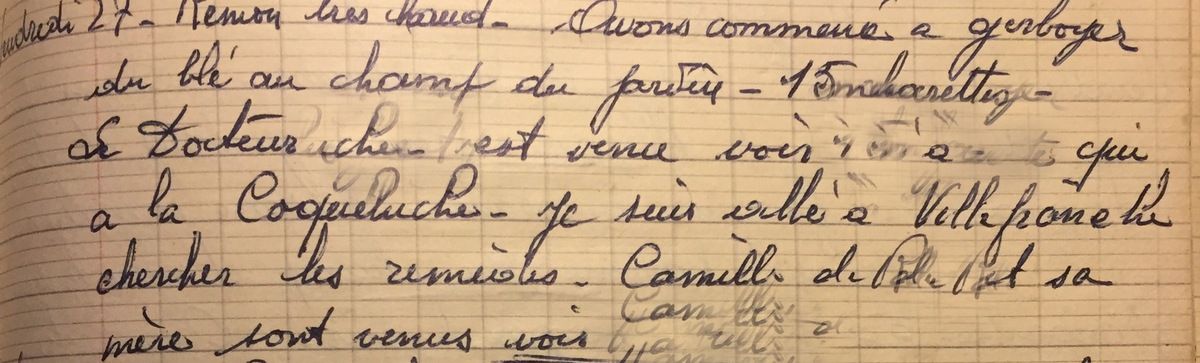 Vendredi 27 - Remou très chaud - Avons commencé a gerboyer
du blé au champ du jardin - 15 charettes
Le Docteur est venu voir a qui
a la Coqueluche - Je suis allé a Villefranche
chercher les remèdes - Camille de et sa
mère sont venus voir
Camille